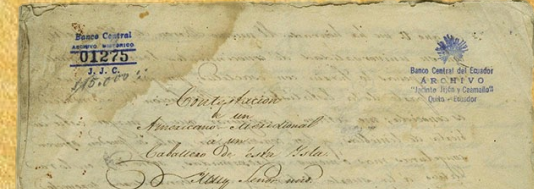 Banco Central
ARCHIVO HISTORICO
01275
J. J. C.
Banco Central del Ecuador
ARCHIVO
"Jacinto Jijón y Caamaño"
Quito - Ecuador
Contestacion
de un
Americano Meridional
a un
Caballero de esta Isla.
Muy Señor mio